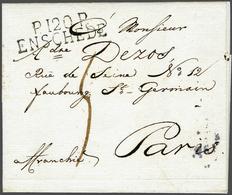 P.120.P.
ENSCHEDE
Monsieur
Dezos
Rue de Seine No 12
faubourg St Germain
5
Paris
affranchie